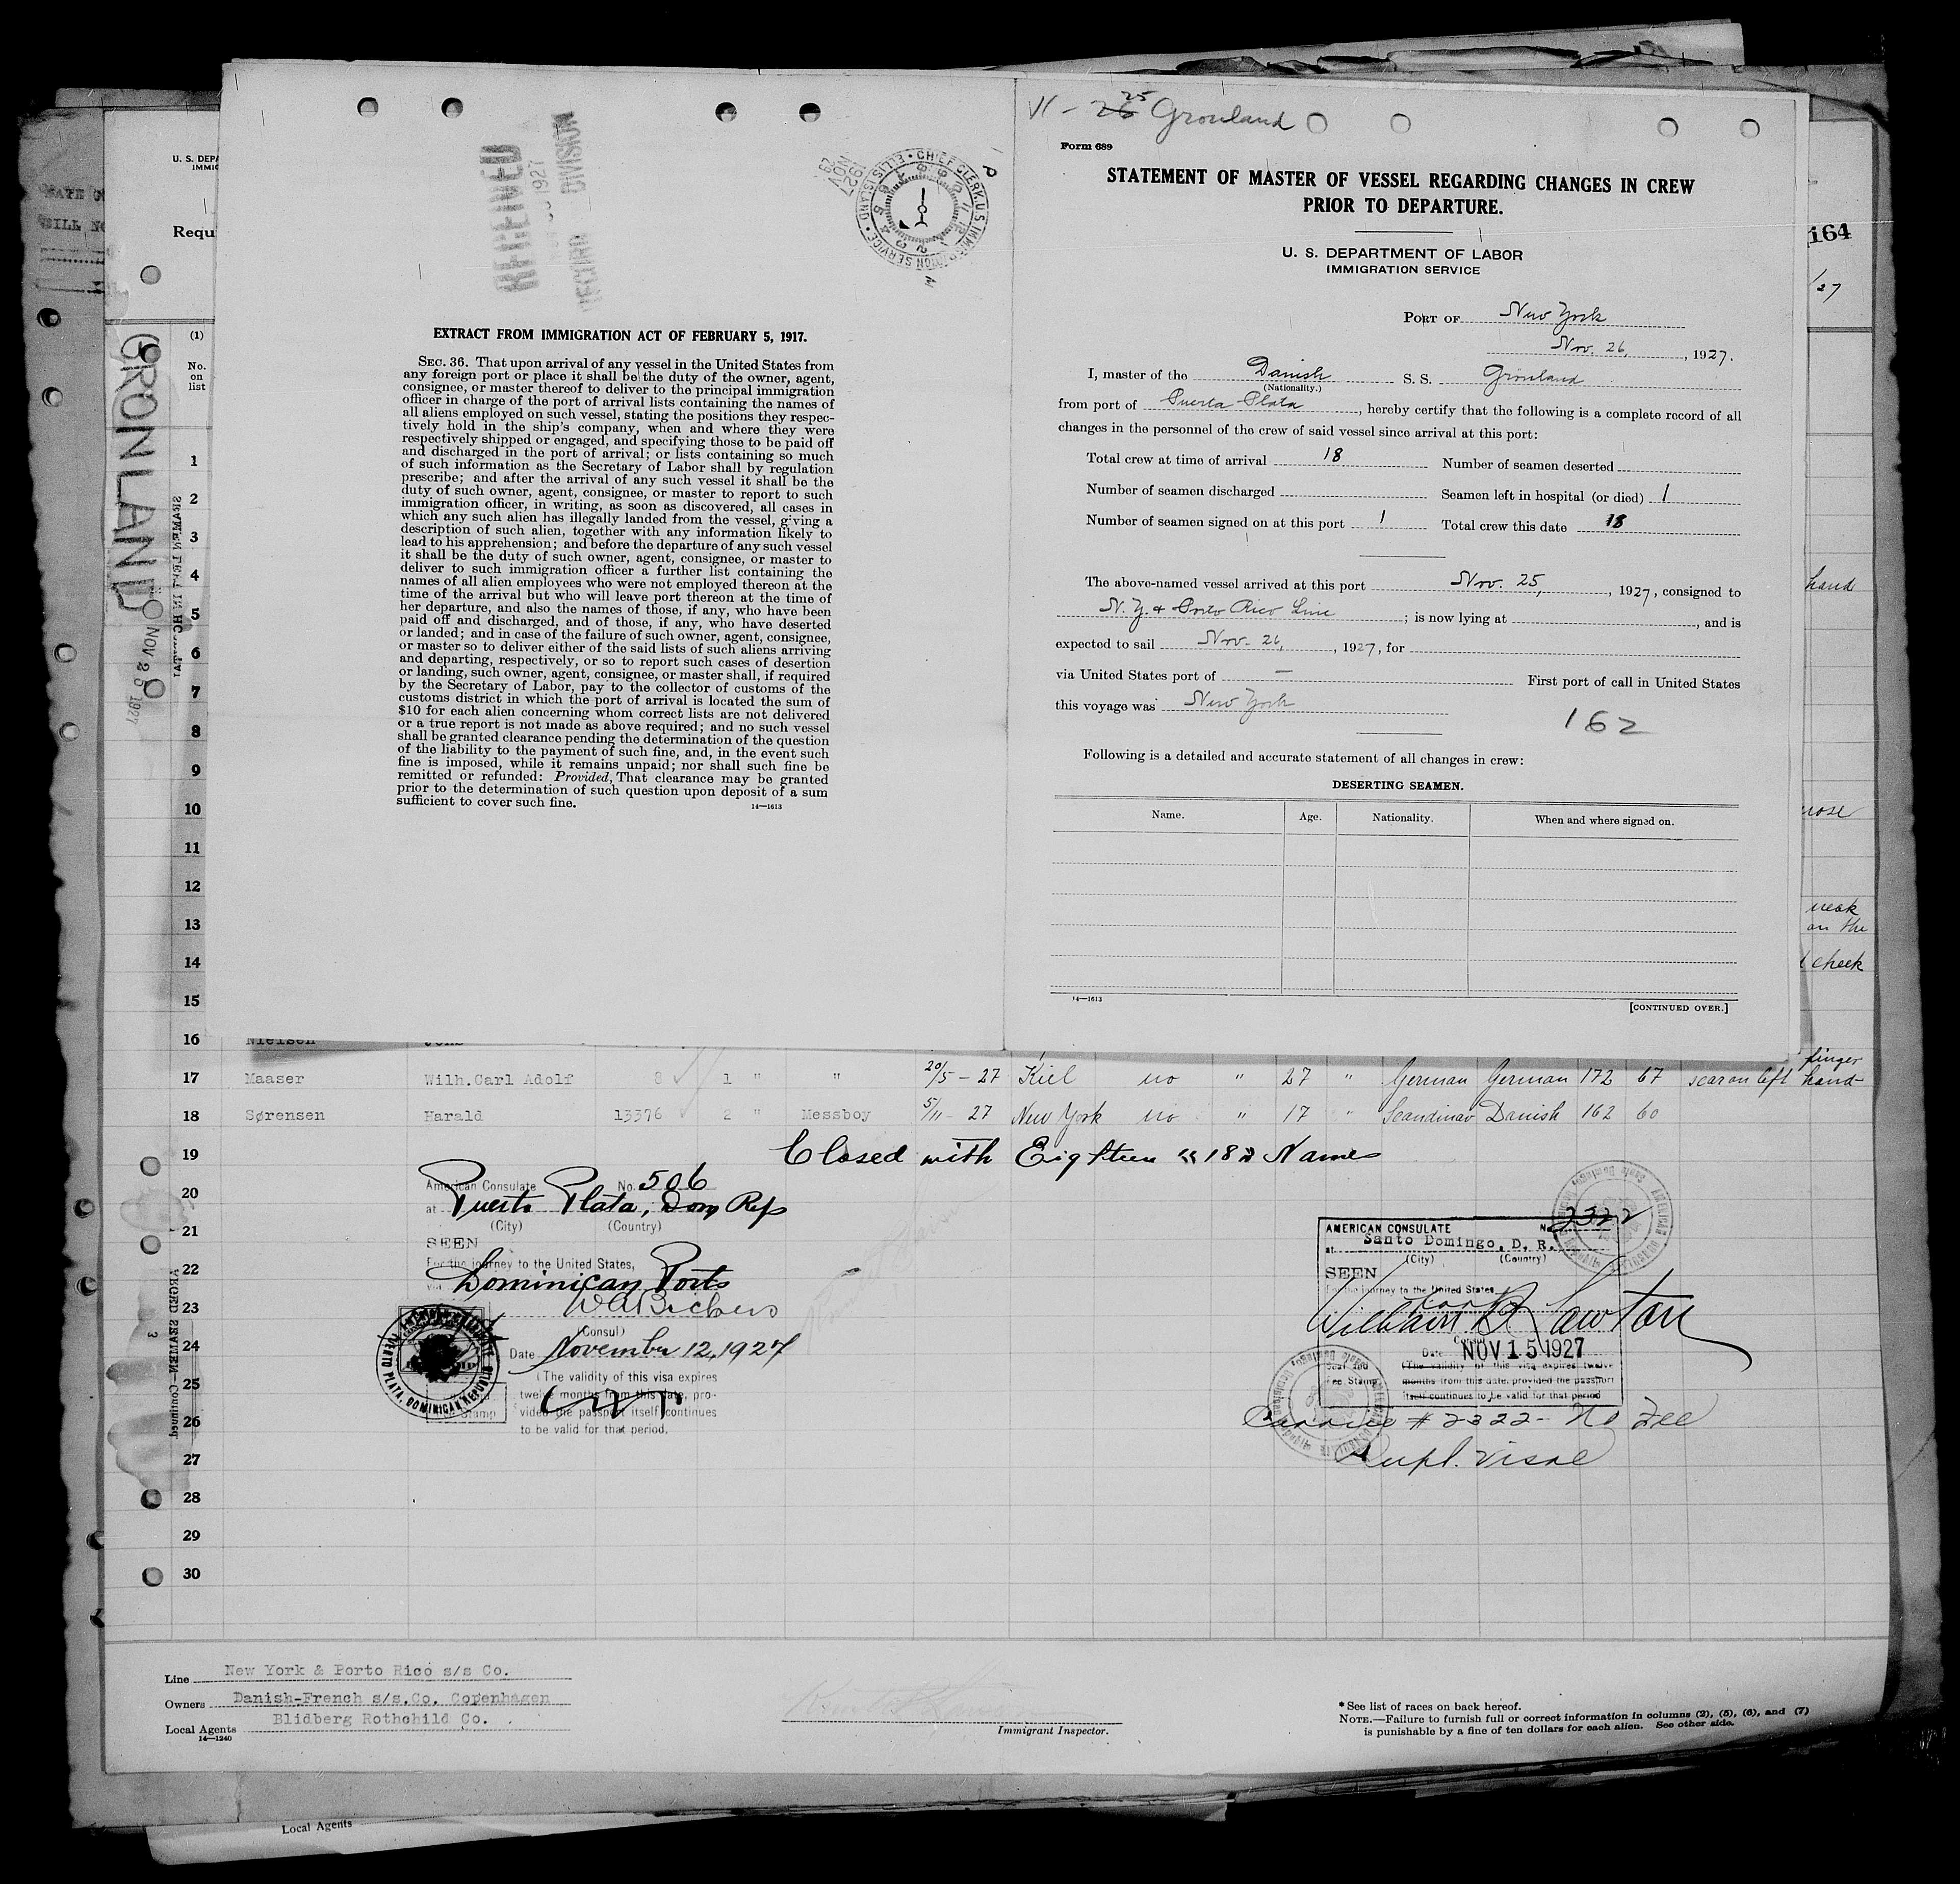 RECEIVED
1927
DIVISION
NOV 28 1927
CHIEF CLERK, U.S. IMMIGRATION SERVICE • ELLIS ISLAND •
EXTRACT FROM IMMIGRATION ACT OF FEBRUARY 5, 1917.
SEC. 36. That upon arrival of any vessel in the United States from
any foreign port or place it shall be the duty of the owner, agent,
consignee, or master thereof to deliver to the principal immigration
officer in charge of the port of arrival lists containing the names of
all aliens employed on such vessel, stating the positions they respec-
tively hold in the ship's company, when and where they were
respectively shipped or engaged, and specifying those to be paid off
and discharged in the port of arrival; or lists containing so much
of such information as the Secretary of Labor shall by regulation
prescribe; and after the arrival of any such vessel it shall be the
duty of such owner, agent, consignee, or master to report to such
immigration officer, in writing, as soon as discovered, all cases in
which any such alien has illegally landed from the vessel, giving a
description of such alien, together with any information likely to
lead to his apprehension; and before the departure of any such vessel
it shall be the duty of such owner, agent, consignee, or master to
deliver to such immigration officer a further list containing the
names of all alien employees who were not employed thereon at the
time of the arrival but who will leave port thereon at the time of
her departure, and also the names of those, if any, who have been
paid off and discharged, and of those, if any, who have deserted
or landed; and in case of the failure of such owner, agent, consignee,
or master so to deliver either of the said lists of such aliens arriving
and departing, respectively, or so to report such cases of desertion
or landing, such owner, agent, consignee, or master shall, if required
by the Secretary of Labor, pay to the collector of customs of the
customs district in which the port of arrival is located the sum of
$10 for each alien concerning whom correct lists are not delivered
or a true report is not made as above required; and no such vessel
shall be granted clearance pending the determination of the question
of the liability to the payment of such fine, and, in the event such
fine is imposed, while it remains unpaid; nor shall such fine be
remitted or refunded: Provided, That clearance may be granted
prior to the determination of such question upon deposit of a sum
sufficient to cover such fine.
14—1613
11 - 26 25 Gronland
Form 689
STATEMENT OF MASTER OF VESSEL REGARDING CHANGES IN CREW
PRIOR TO DEPARTURE.
U. S. DEPARTMENT OF LABOR
IMMIGRATION SERVICE
PORT OF New York
Nov. 26, 1927.
I, master of the Danish S. S. Gronland
(Nationality.)
from port of Puerta Plata, hereby certify that the following is a complete record of all
changes in the personnel of the crew of said vessel since arrival at this port:
Total crew at time of arrival 18 Number of seamen deserted
Number of seamen discharged Seamen left in hospital (or died) 1
Number of seamen signed on at this port 1 Total crew this date 18
The above-named vessel arrived at this port Nov. 25, 1927, consigned to
N. Y. & Porto Rico Line; is now lying at , and is
expected to sail Nov. 26, 1927, for
via United States port of — First port of call in United States
this voyage was New York
162
Following is a detailed and accurate statement of all changes in crew:
DESERTING SEAMEN.
Name. Age. Nationality. When and where signed on.
14—1613
[CONTINUED OVER.]
U. S. DEPA
IMMIG
Requ
164
/27
GRONLAND
NOV 25 1927
(1)
No.
on
list
1
2
3
4
5
6
7
8
9
10
11
12
13
14
15
hand
nose
neck
on the
cheek
16 Nielsen Jens
finger
17 Maaser Wilh.Carl Adolf 8 1 " " 20/5 - 27 Kiel no " 27 " German German 172 67 scar on left hand
18 Sørensen Harald 13376 2 " Messboy 5/11 - 27 New York no " 17 " Scandinav Danish 162 60
19 Closed with Eighteen "18" Names
20
21
22
23
24
25
26
27
28
29
30
American Consulate No. 506
at Puerto Plata, Dom Rep
(City) (Country)
SEEN
For the journey to the United States,
via Dominican Ports
(Consul)
Date November 12, 1927
(The validity of this visa expires
twelve months from this date, pro-
vided the passport itself continues
to be valid for that period.
PUERTO PLATA, DOMINICAN REPUBLIC
AMERICAN CONSULATE No. 2322
at Santo Domingo, D. R.
(City) (Country)
SEEN
For the journey to the United States
William B Lawton
Consul
Date NOV 15 1927
(The validity of this visa expires twelve
months from this date, provided the passport
itself continues to be valid for that period
Fee Stamp
Service # 2322 - No Fee
Supl. Visae
Line New York & Porto Rico s/s Co.
Owners Danish-French s/s.Co. Copenhagen
Local Agents Blidberg Rothchild Co.
14—1240
Immigrant Inspector.
* See list of races on back hereof.
NOTE.—Failure to furnish full or correct information in columns (2), (5), (6), and (7)
is punishable by a fine of ten dollars for each alien. See other side.
Local Agents